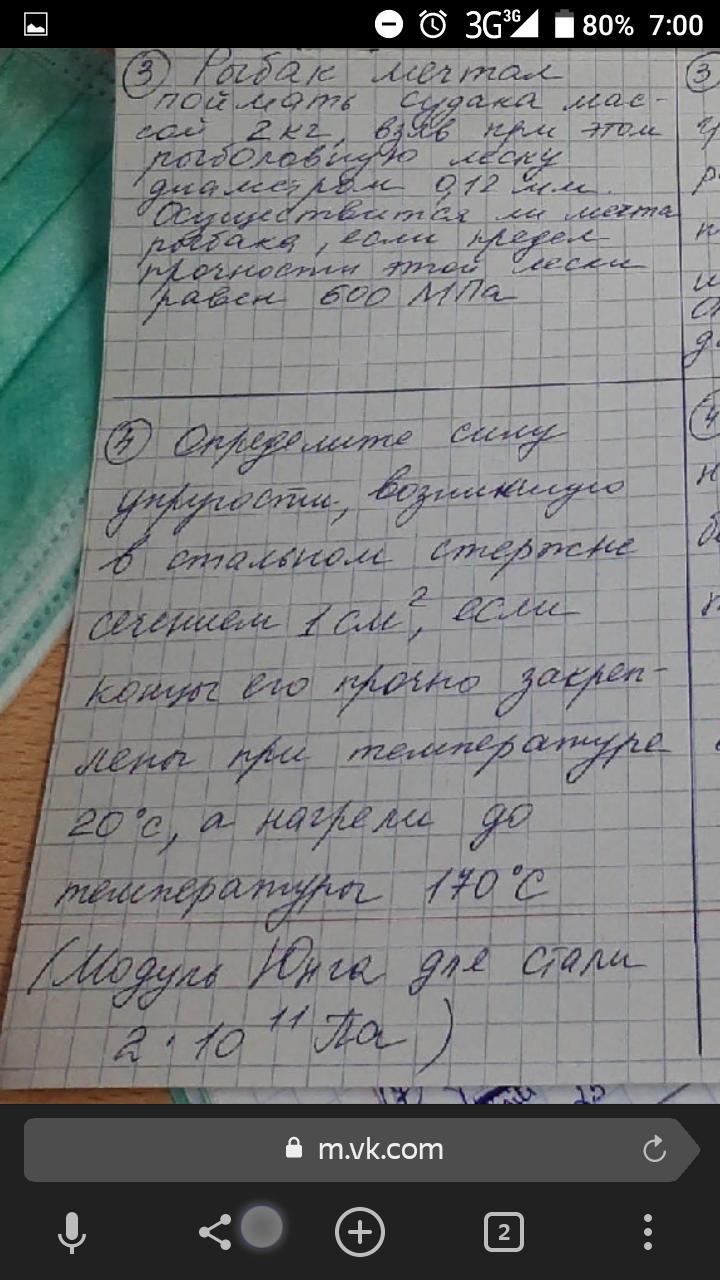 3G 3G 80% 7:00
③ Рыбак мечтал
поймать судака мас-
сой 2 кг, взяв при этом
рыболовную леску
диаметром 0,12 мм.
Осуществится ли мечта
рыбака, если предел
прочности этой лески
равен 600 МПа
④ Определите силу
упругости, возникшую
в стальном стержне
сечением 1 см², если
концы его прочно закреп-
лены при температуре
20°С, а нагрели до
температуры 170°С
(Модуль Юнга для стали
2·10¹¹ Па)
③
④
m.vk.com
2